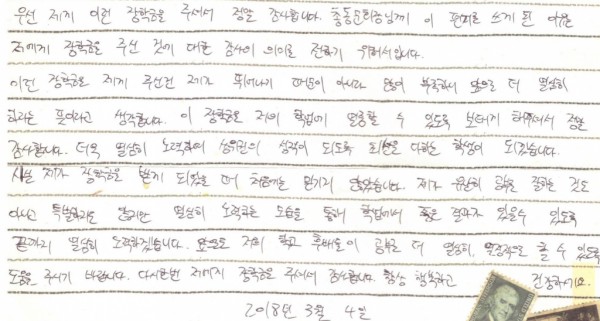 우선 제게 이런 장학금을 주셔서 정말 감사합니다. 총동문회님께 이 편지를 쓰게 된 이유는
저에게 장학금을 주신 것에 대한 감사의 의미를 전하기 위해서입니다.
이런 장학금을 제게 주신건 제가 뛰어나기 때문이 아니라 많이 부족하니 앞으로 더 열심히
하라는 뜻이라고 생각합니다. 이 장학금은 저의 학업에 열중할 수 있도록 보태게 해주셔서 정말
감사합니다. 더욱 열심히 노력하여 상위권의 성적이 되도록 최선을 다하는 학생이 되겠습니다.
사실 제가 장학금을 받게 되었을 때 처음에는 믿기지 않았습니다. 제가 공부를 잘하는 것도
아니고 특별하지도 않지만 열심히 노력하는 모습을 통해 학업에서 좋은 결과가 있을수 있도록
끝까지 열심히 노력하겠습니다. 앞으로도 저희 학교 후배들이 공부를 더 열심히, 열정적으로 할 수 있도록
도움을 주시기 바랍니다. 다시한번 저에게 장학금을 주셔서 감사합니다. 항상 행복하고 건강하세요.
2018년 3월 4일